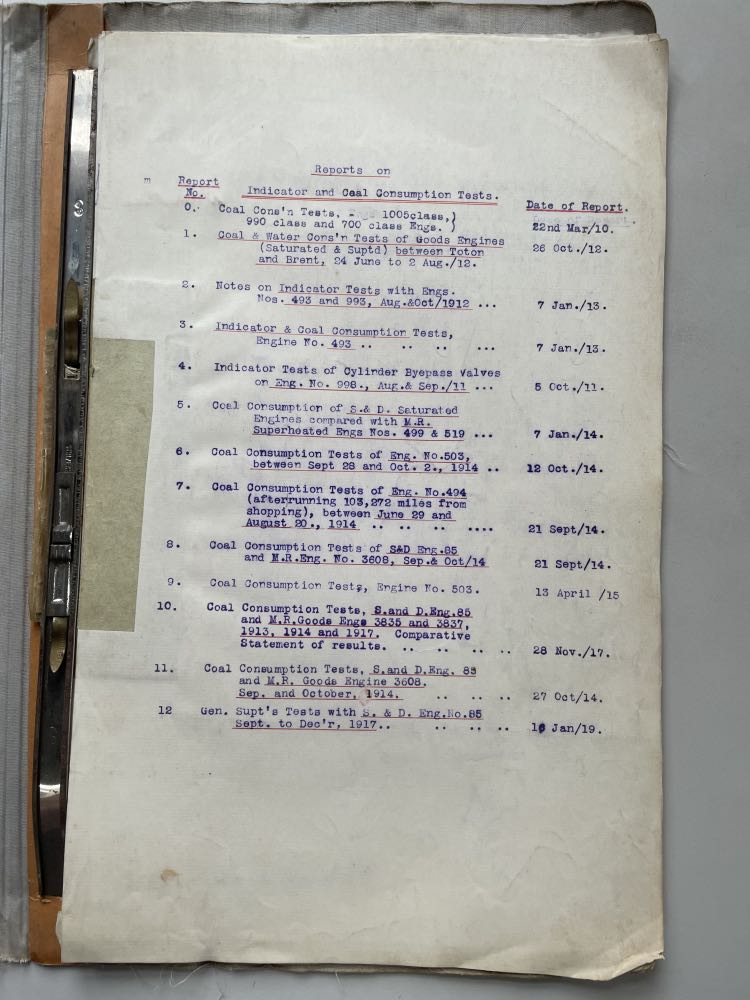 Reports on
m Report
No. Indicator and Coal Consumption Tests. Date of Report.
0. Coal Cons'n Tests, 1005class,}
990 class and 700 class Engs. } 22nd Mar/10.
1. Coal & Water Cons'n Tests of Goods Engines
(Saturated & Suptd) between Toton 26 Oct./12.
and Brent, 24 June to 2 Aug./12.
2. Notes on Indicator Tests with Engs.
Nos. 493 and 993, Aug.&Oct/1912 ... 7 Jan./13.
3. Indicator & Coal Consumption Tests,
Engine No. 493 .. .. .. ... 7 Jan./13.
4. Indicator Tests of Cylinder Byepass Valves
on Eng. No. 998., Aug.& Sep./11 ... 5 Oct./11.
5. Coal Consumption of S.& D. Saturated
Engines compared with M.R.
Superheated Engs Nos. 499 & 519 ... 7 Jan./14.
6. Coal Consumption Tests of Eng. No.503,
between Sept 28 and Oct. 2., 1914 .. 12 Oct./14.
7. Coal Consumption Tests of Eng. No.494
(afterrunning 103,272 miles from
shopping), between June 29 and
August 20., 1914 .. .. .. .... 21 Sept/14.
8. Coal Consumption Tests of S&D Eng.85
and M.R.Eng. No. 3608, Sep.& Oct/14 21 Sept/14.
9. Coal Consumption Tests, Engine No. 503. 13 April /15
10. Coal Consumption Tests, S.and D.Eng.85
and M.R.Goods Engs 3835 and 3837,
1913, 1914 and 1917. Comparative
Statement of results. .. .. .. .. 28 Nov./17.
11. Coal Consumption Tests, S.and D.Eng. 85
and M.R. Goods Engine 3608.
Sep. and October, 1914. .. .. .. 27 Oct/14.
12 Gen. Supt's Tests with S. & D. Eng.No.85
Sept. to Dec'r, 1917.. .. .. .. Jan/19.